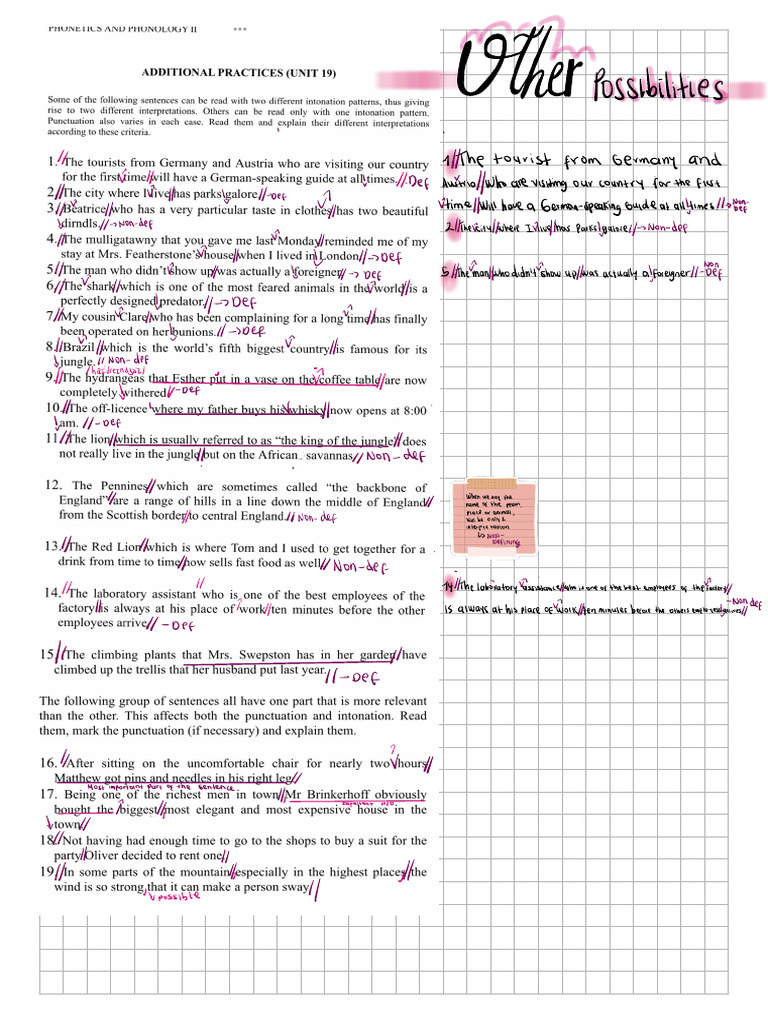 PHONETICS AND PHONOLOGY II ***
Other Possibilities
ADDITIONAL PRACTICES (UNIT 19)
Some of the following sentences can be read with two different intonation patterns, thus giving
rise to two different interpretations. Others can be read only with one intonation pattern.
Punctuation also varies in each case. Read them and explain their different interpretations
according to these criteria.
1.// The tourists from Germany and Austria who are visiting our country
for the first time// will have a German-speaking guide at all times.// Def
2.// The city where I live// has parks galore// → Def
3.// Beatrice// who has a very particular taste in clothes// has two beautiful
dirndls.// → Non-def
4.// The mulligatawny that you gave me last Monday// reminded me of my
stay at Mrs. Featherstone's house// when I lived in London// → Def
5.// The man who didn't show up// was actually a foreigner// → Def
6.// The shark// which is one of the most feared animals in the world// is a
perfectly designed predator.// → Def
7.// My cousin Clare// who has been complaining for a long time// has finally
been operated on her bunions.// → Def
8.// Brazil// which is the world's fifth biggest country// is famous for its
jungle.// Non-def
9.// The hydrangeas that Esther put in a vase on the coffee table// are now
completely withered// -Def
10.// The off-licence where my father buys his whisky// now opens at 8:00
am. // -Def
11// The lion// which is usually referred to as “the king of the jungle”// does
not really live in the jungle// but on the African savannas// Non-def
12. The Pennines// which are sometimes called “the backbone of
England”// are a range of hills in a line down the middle of England//
from the Scottish border// to central England.// Non-def
13.// The Red Lion// which is where Tom and I used to get together for a
drink from time to time// now sells fast food as well// Non-def
14.// The laboratory assistant // who is one of the best employees of the
factory// is always at his place of work// ten minutes before the other
employees arrive// -Def
15// The climbing plants that Mrs. Swepston has in her garden// have
climbed up the trellis that her husband put last year.// -Def
The following group of sentences all have one part that is more relevant
than the other. This affects both the punctuation and intonation. Read
them, mark the punctuation (if necessary) and explain them.
16.// After sitting on the uncomfortable chair for nearly two hours//
Matthew got pins and needles in his right leg//
Most important part of the sentence.
17. Being one of the richest men in town// Mr Brinkerhoff obviously
bought the biggest// most elegant and most expensive house in the
town//
18// Not having had enough time to go to the shops to buy a suit for the
party// Oliver decided to rent one//
19// In some parts of the mountain// especially in the highest places// the
wind is so strong that it can make a person sway//
possible
1// The tourist from Germany and
Austria// Who are visiting our country for the first
time// Will have a German-speaking Guide at all times// → Non-Def
2.// The city// where I live// has Parks galore// → Non-def
5.// The man// who didn't show up// was actually a foreigner// → Non Def
When we say the
name of the person,
place or animal,
will be only 1
interpretation
↳ Non-
Defining
14// The laboratory assistance// who is one of the best employees of the factory//
is always at his place of work// ten minutes before the others employees arrives// - Non def